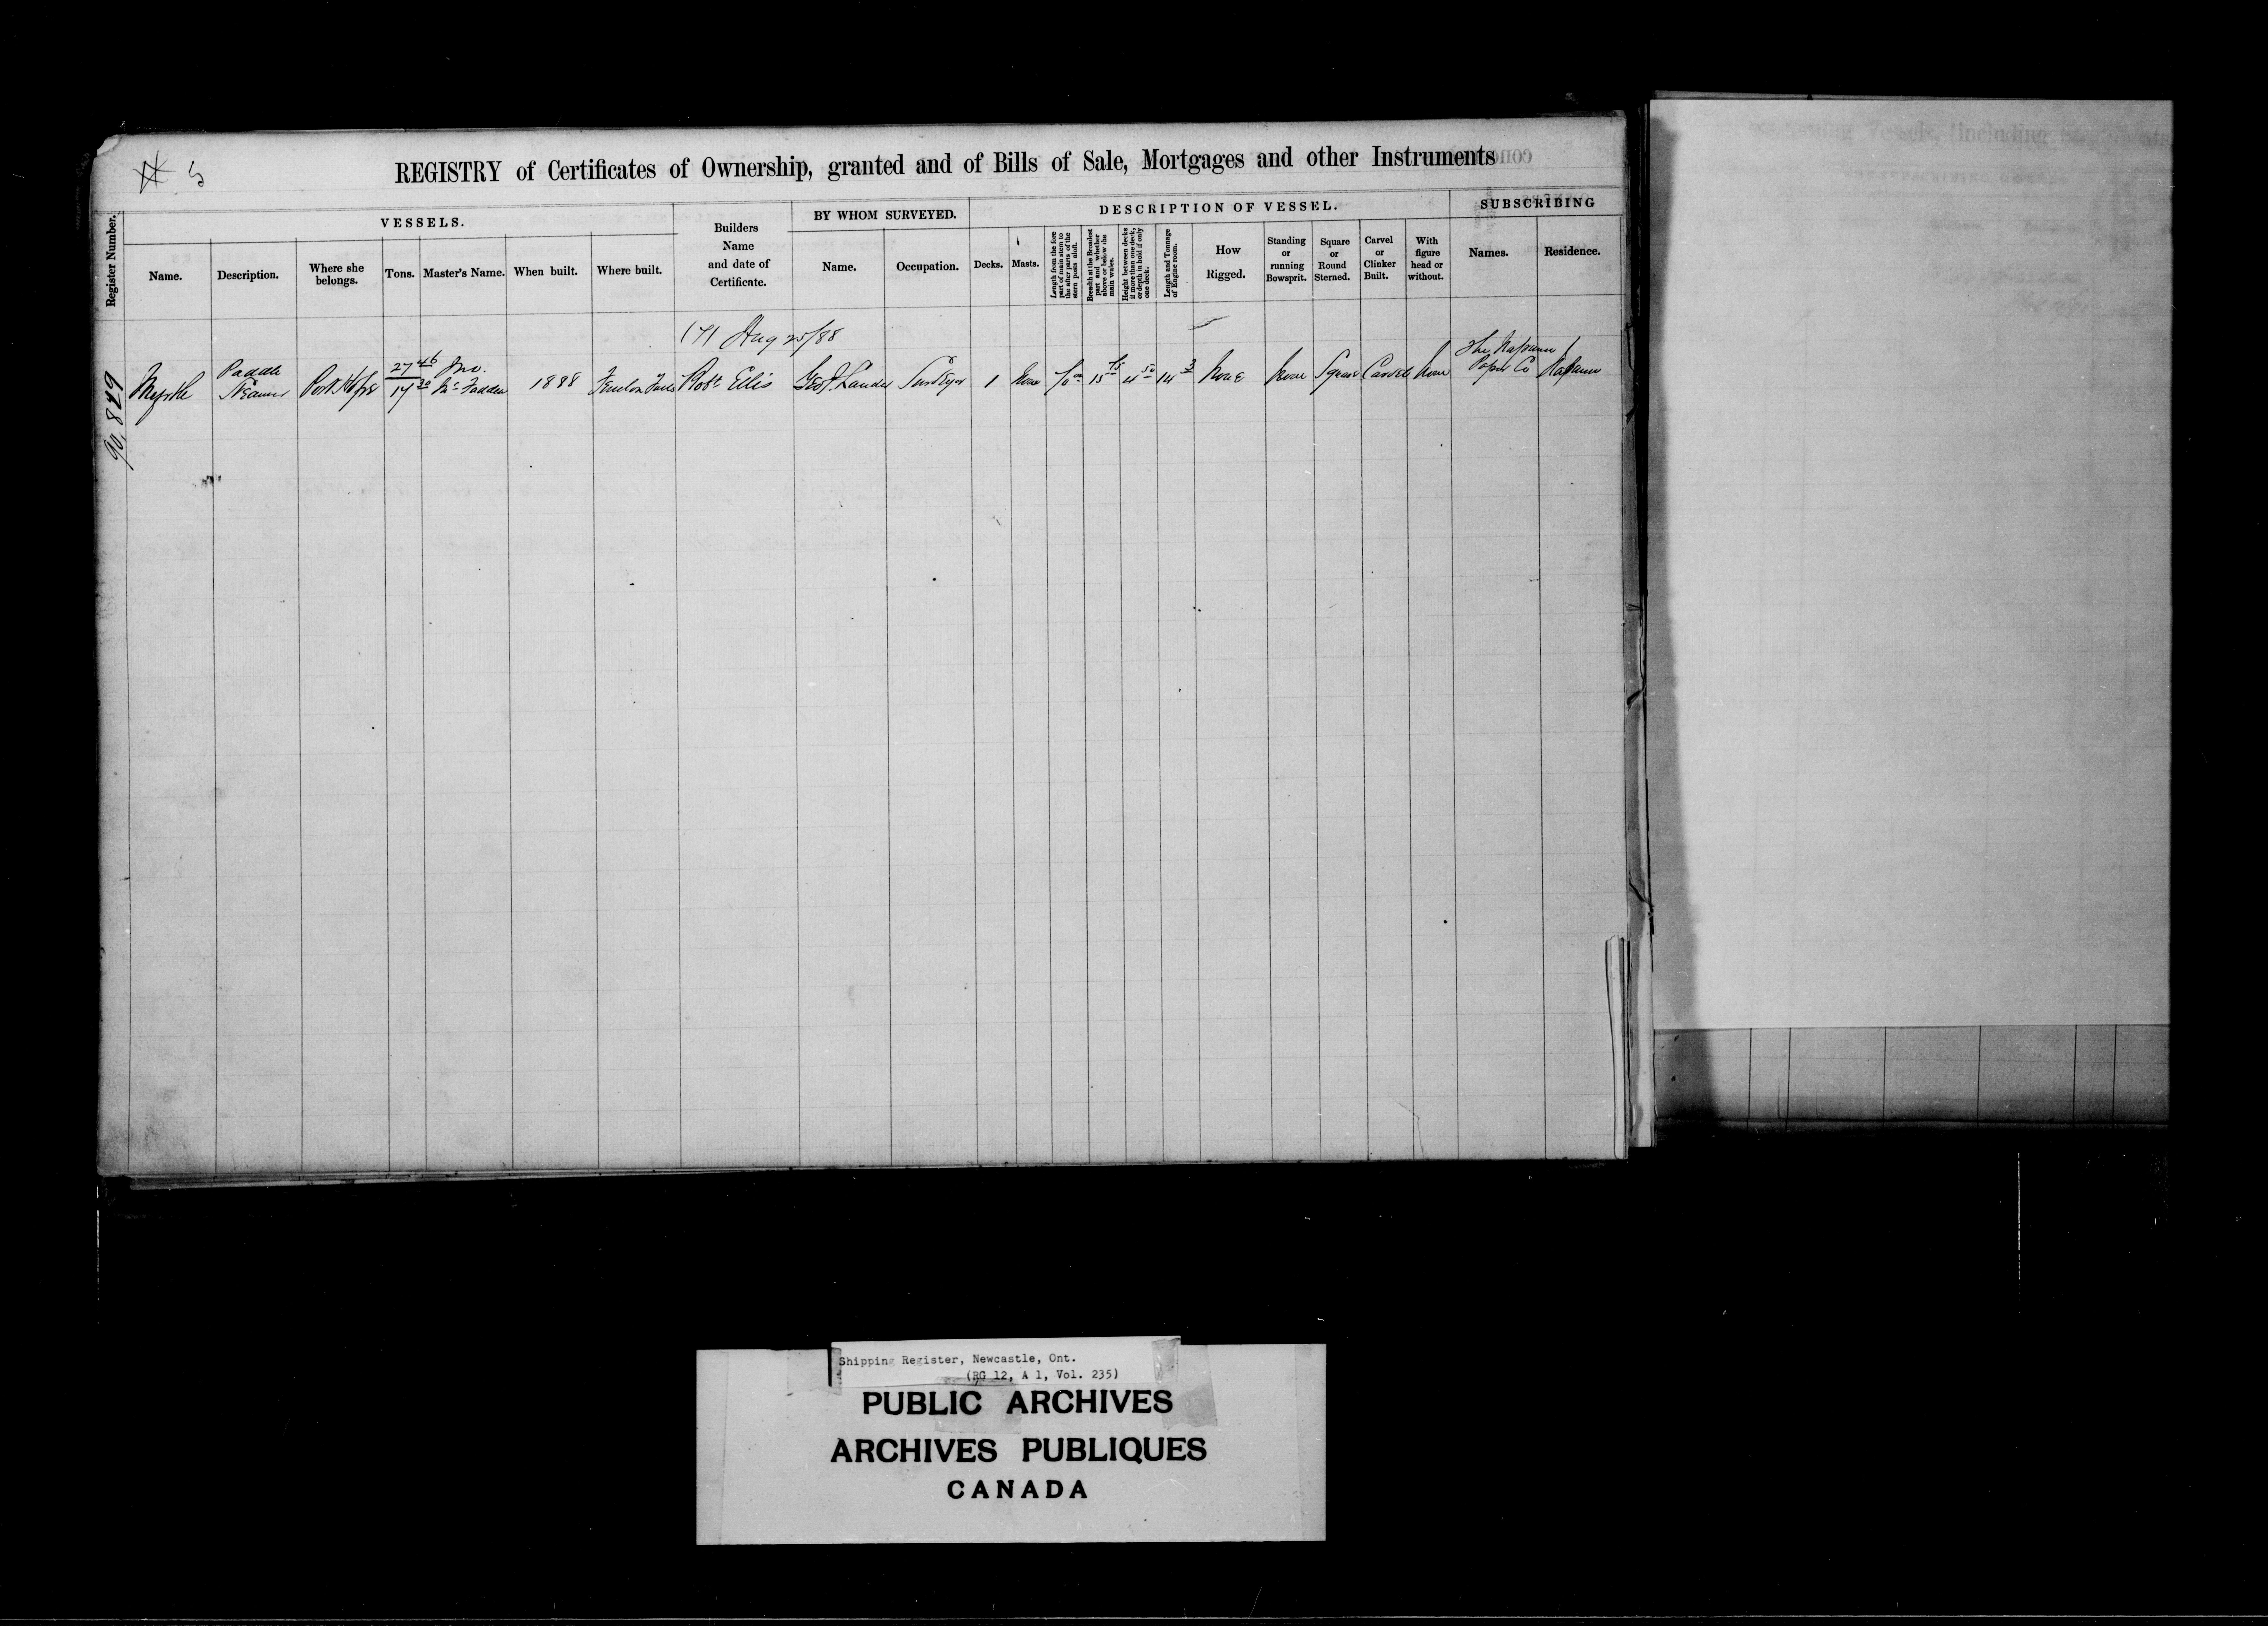 # 5
REGISTRY of Certificates of Ownership, granted and of Bills of Sale, Mortgages and other Instruments
Register Number.
VESSELS.
Name.
Description.
Where she belongs.
Tons.
Master's Name.
When built.
Where built.
Builders Name and date of Certificate.
BY WHOM SURVEYED.
Name.
Occupation.
DESCRIPTION OF VESSEL.
Decks.
Masts.
Length from the fore part of main stem to the after parts of the stern posts aloft.
Breadth at the Broadest part and whether above or below the main wales.
Height between decks if more than one deck, or depth in hold if only one deck.
Length and Tonnage of Engine room.
How Rigged.
Standing or running Bowsprit.
Square or Round Sterned.
Carvel or Clinker Built.
With figure head or without.
SUBSCRIBING
Names.
Residence.
90,829
Myrtle
Paddle Steamer
Port Hope
27 46
17 30
Jno. McFadden
1888
Fenelon Falls
(7) Aug 25/88
Robt Ellis
Surveyor
1
None
15
14 3
None
None
Square
Carvel
None
The Napanee Paper Co
Napanee
Shipping Register, Newcastle, Ont.
(RG 12, A 1, Vol. 235)
PUBLIC ARCHIVES
ARCHIVES PUBLIQUES
CANADA